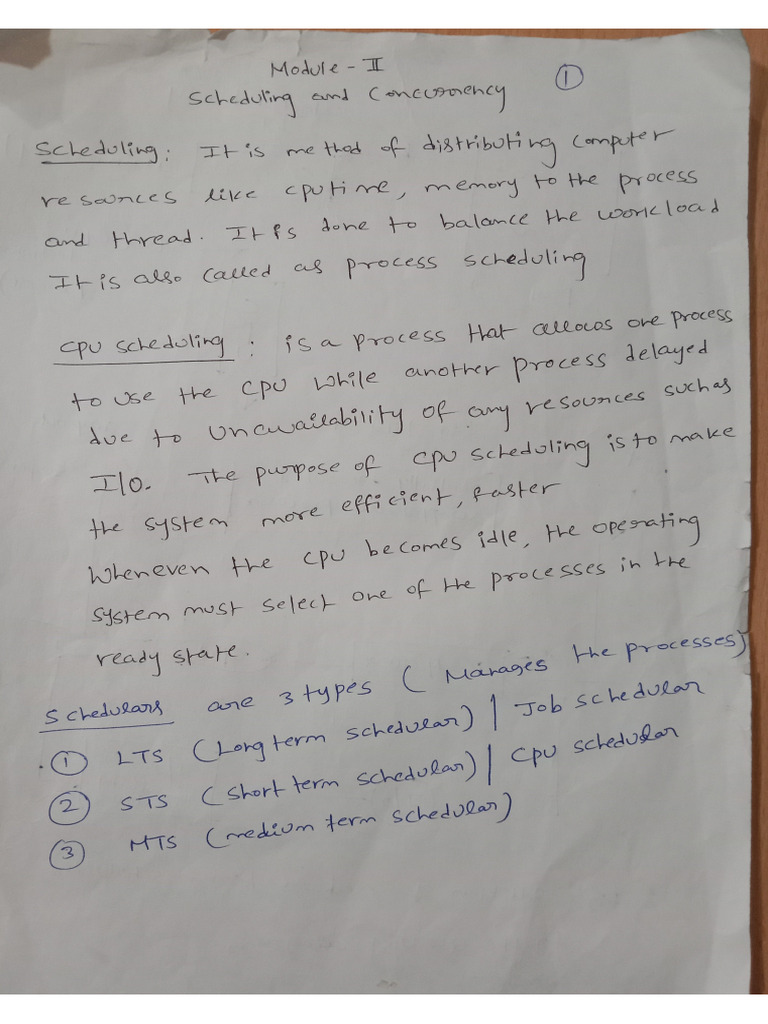 Module - II
①
Scheduling and Concurrency
Scheduling: It is method of distributing computer
resources like cputime, memory to the process
and thread. It is done to balance the workload
It is also called as process scheduling
CPU scheduling: is a process that allows one process
to use the CPU while another process delayed
due to unavailability of any resources such as
I/O. The purpose of CPU scheduling is to make
the system more efficient, faster
Whenever the CPU becomes idle, the operating
system must select one of the processes in the
ready state.
Schedulars are 3 types (Manages the processes)
① LTS (Long term schedular) | Job schedular
② STS (short term schedular) | CPU schedular
③ MTS (medium term schedular)